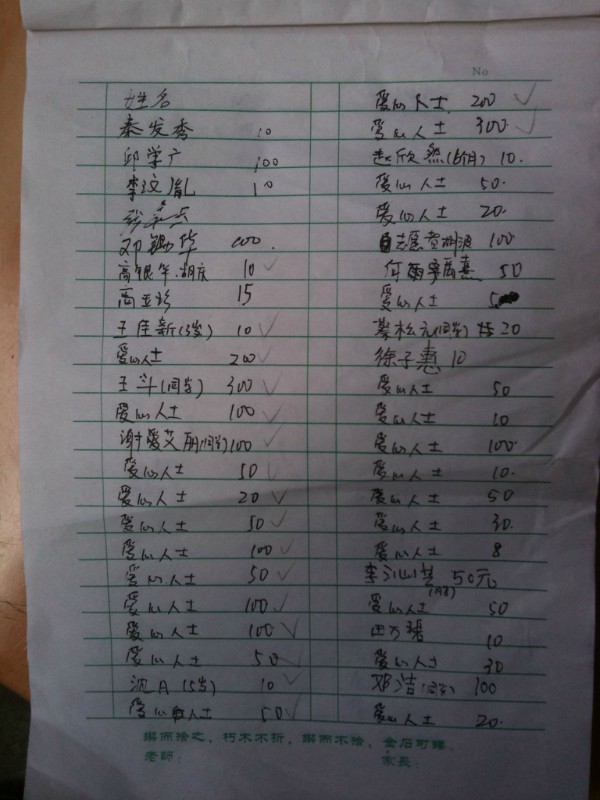 No
姓名
秦发秀 10
邱学广 100
李文胤 10
邓锡华
高银年、胡庆 10
高亚衫 15
王佳新(3岁) 10
爱心人士 200
王斗(同学) 300
爱心人士 100
谢爱艾丽(同学) 100
爱心人士 50
爱心人士 20
爱心人士 50
爱心人士 100
爱心人士 50
爱心人士 100
爱心人士 100
爱心人士 50
沈A(5岁) 10
爱心人士 50
爱心人士 200
爱心人士 300
赵欣然(6个月) 10.
爱心人士 50.
爱心人士 20.
志愿 100
50
爱心人士
20
徐子惠 10
爱心人士 50
爱心人士 10
爱心人士 100.
爱心人士 10.
爱心人士 50
爱心人士 30.
爱心人士 8
李 50元
爱心人士 50
田万 10
爱心人士 30
邓洁(同学) 100
爱心人士 20.
锲而舍之，朽木不折，锲而不舍，金石可镂。
老師： 家長：